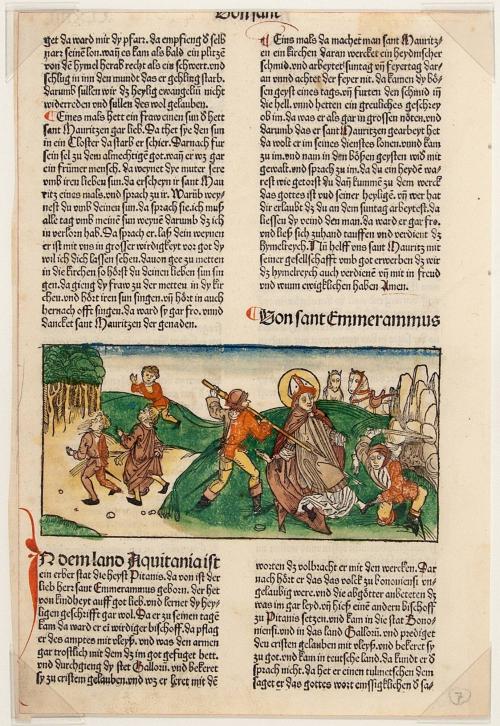 Von sant
get da ward mir dy pfarr. da empfieng d̄ selb
narr seinē lon. wan̄ es kam als bald ein plitzē
von dē hymel herab recht als ein schwert. vnd
schlug in inn den mundt das er gehling starb.
darumb sullen wir dz heylig ewangeliū nicht
widerreden vnd sullen des wol gelauben.
¶ Eines mals hett ein fraw einen sun d̄ hett
sant Mauritzen gar lieb. Da thet sye den sun
in ein Closter da starb er schier. Darnach fur
sein sel zu dem almechtigē got. wan̄ er wz gar
ein frümer mensch. da weynet dye muter sere
vmb iren lieben sun. da erscheyn ir sant Mau
ritz eines mals. vnd sprach zu ir. Warūb wey-
nest du vmb deinen sun. da sprach sie. ich muß
alle tag vmb meinē sun weynē darumb dz ich
in verlorn hab. Da sprach er. laß dein weynen
er ist mit vns in grosser wirdigkeyt vor got dy
wil ich dich lassen sehen. dauon gee zu metten
in die kirchen so hörst du deinen lieben sun sin
gen. da gieng dy fraw zu der metten in dy kir
chen. vnd hört iren sun singen. vn̄ hört in auch
hernach offt singen. da ward sy gar fro. vnnd
dancket sant Mauritzen der genaden.
¶ Eins mals da machet man sant Mauritz-
en ein kirchen daran wercket ein heydnischer
schmid. vnd arbeytet suntag vn̄ feyertag dar-
an vnnd achtet der feyer nit. da kamen dy bö-
sen geyst eines tags. vn̄ furten den schmid in
die hell. vnnd hetten ein greuliches geschrey
ob im. da was er als gar in grossen nöten. vnd
darumb das er sant Mauritzen gearbeyt het
da wolt er im seines dienstes lonen. vnnd kam
zu im. vnd nam in den bösen geysten wid̄ mit
gewalt. vnd sprach zu im. da du ein heydē wa-
rest wie getorst du dan̄ kummē zu dem werck
das gottes ist vnd seiner heyligē. vn̄ wer hat
dir erlaubt dz du an dem suntag arbeytest. da
liessen dy veind den man. da ward er gar fro.
vnd ließ sich zuhand tauffen vnd verdient dz
hymelreych. Nū helff vns sant Mauritz mit
seiner gesellschafft vmb got erwerben dz wir
dz hymelreych auch verdienē vn̄ mit in freud
vnd wunn ewigklichen haben Amen.
¶ Von sant Emmerammus
N dem land Aquitania ist
ein erber stat die heyst Pitanis. da von ist der
lieb herr sant Emmerammus geborn. der het
von kindheyt auff got lieb. vnd lernet dy hey-
ligen geschrifft gar wol. Da er zu seinen tagē
kam da ward er ei wirdiger bischoff. da pflag
er des amptes mit vleyß. vnd was den armen
gar trostlich mit dem dz im got gefuget hett.
vnd durchgieng dy stet Gallorū. vnd bekeret
sy zu cristem gelauben. vnd wz er leret mit dē
worten dz volbracht er mit den wercken. Dar
nach hört er das das volck zu bononiensi vn-
gelaubig were. vnd die abgötter anbeteten dz
was im gar leyd. vn̄ hieß einē andern bischoff
zu Pitanis setzen. vnd kam in die stat Bono-
niensi. vnd in das land Gallorū. vnd prediget
den cristen gelauben mit vleyß. vnd bekeret sy
zu got. vnd kam in teutsche land. da kundt er d̄
sprach nicht. da het er einen tulmetschen dem
saget er das gottes wort emssigklichen d̄ sa-
7